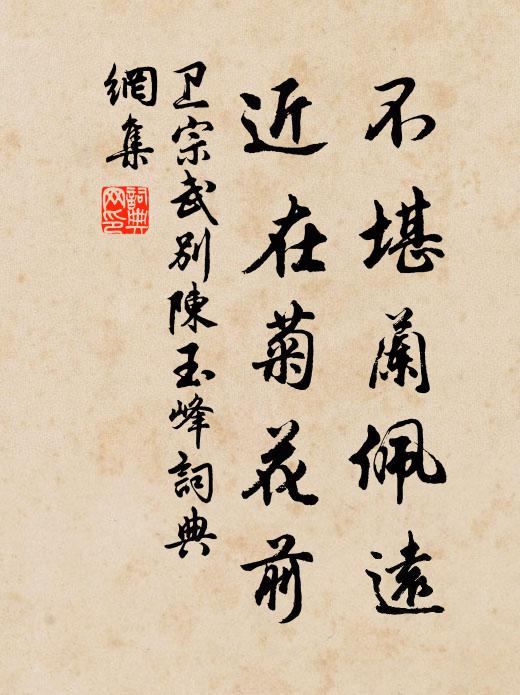 不堪蘭佩遠
近在菊花前
卫宗武別陳玉峰詞典
網集
詞典网印